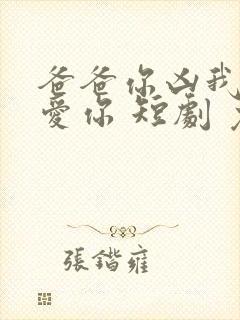 爸爸你凶我
愛你 短劇
張鍇雍